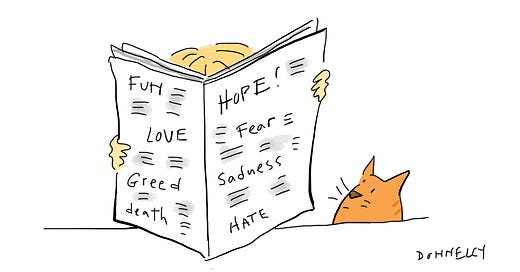 FUN
LOVE
Greed
death
HOPE!
Fear
Sadness
HATE
DONNELLY